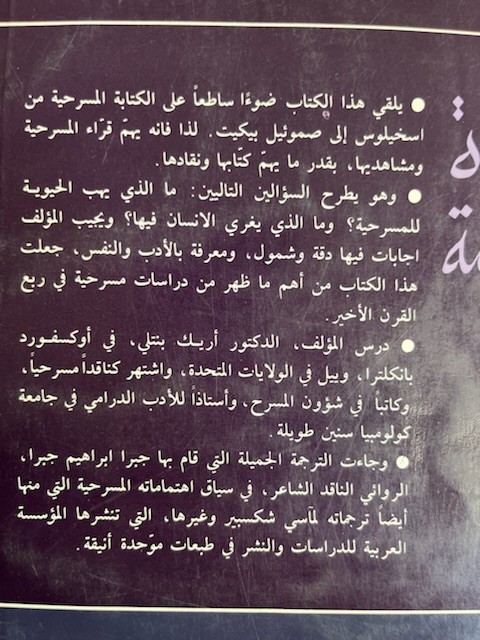 ● يلقي هذا الكتاب ضوءًا ساطعاً على الكتابة المسرحية من
اسخيلوس إلى صموئيل بيكيت. لذا فانه يهمّ قرّاء المسرحية
ومشاهديها، بقدر ما يهمّ كتّابها ونقادها.
● وهو يطرح السؤالين التاليين: ما الذي يهب الحيويـة
للمسرحية؟ وما الذي يغري الانسان فيها؟ ويجيب المؤلف
اجابات فيها دقة وشمول، ومعرفة بالأدب والنفس، جعلت
هذا الكتاب من أهم ما ظهر من دراسات مسرحية في ربع
القرن الأخير.
● درس المؤلف، الدكتور أريـك بنتلي، في أوكسفـورد
بانكلترا، وييل في الولايات المتحدة، واشتهر كناقداً مسرحياً،
وكاتباً في شؤون المسرح، وأستاذاً للأدب الدرامي في جامعة
كولومبيا سنين طويلة.
● وجاءت الترجمة الجميلة التي قام بها جبرا ابراهيم جبرا،
الروائي الناقد الشاعر، في سياق اهتماماته المسرحية التي منها
أيضاً ترجماته لمآسي شكسبير وغيرها، التي تنشرها المؤسسة
العربية للدراسات والنشر في طبعات موّحدة أنيقة.